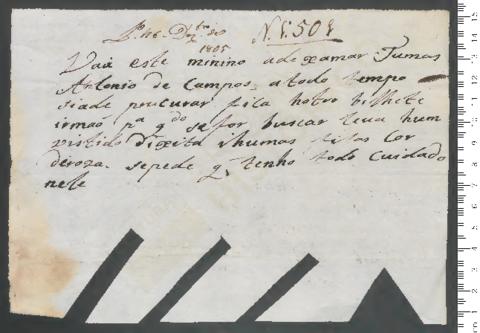 N. 1:501
1805
Vai este minino adexamar Tumas
Antonio de Campos, atodo tempo
siade procurar fica hotro bilhete
irmaõ pª q do se for buscar leva hum
vistido di xita i humas fitas Cor
deroza. sepede q tenho todo Cuidado
nele